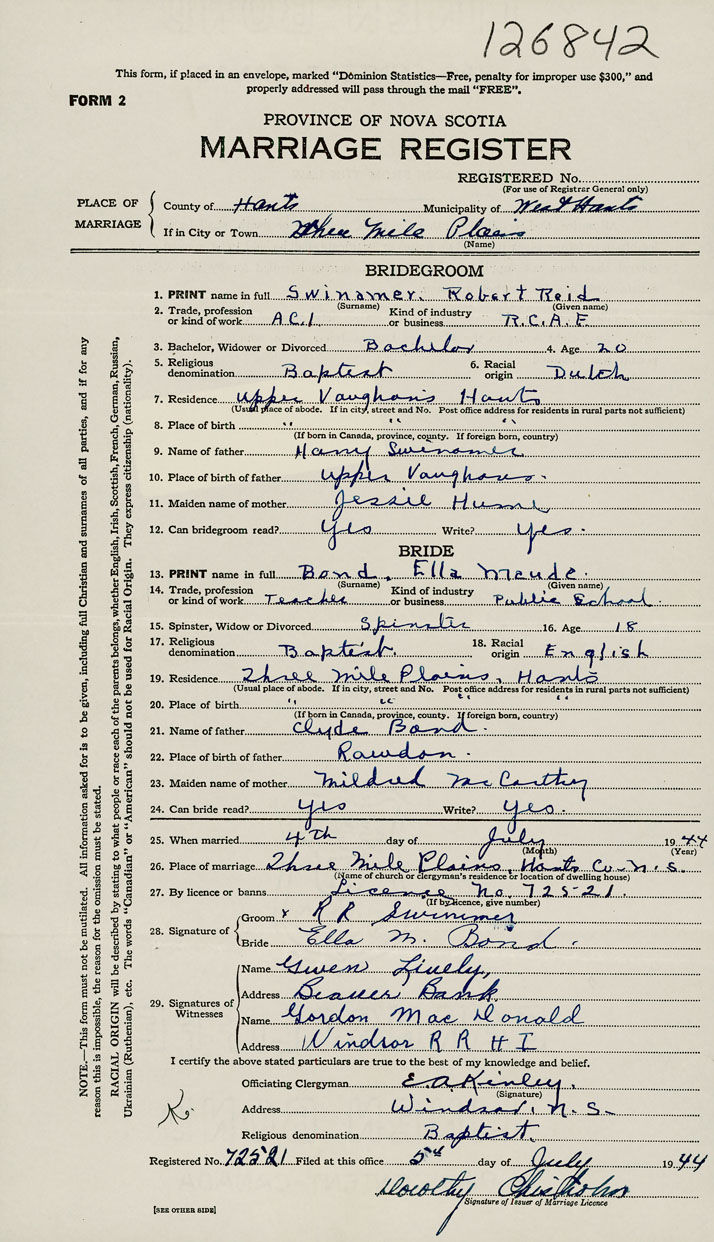 126842
This form, if placed in an envelope, marked "Dominion Statistics—Free, penalty for improper use $300," and
properly addressed will pass through the mail "FREE".
FORM 2
PROVINCE OF NOVA SCOTIA
MARRIAGE REGISTER
REGISTERED No.
(For use of Registrar General only)
PLACE OF MARRIAGE
County of Hants Municipality of West Hants
If in City or Town Three Mile Plains
(Name)
BRIDEGROOM
1. PRINT name in full Swinamer, Robert Reid
(Surname) (Given name)
2. Trade, profession or kind of work A.C.1 Kind of industry or business R.C.A.F.
3. Bachelor, Widower or Divorced Bachelor 4. Age 20
5. Religious denomination Baptist 6. Racial origin Dutch
7. Residence Upper Vaughans Hants
(Usual place of abode. If in city, street and No. Post office address for residents in rural parts not sufficient)
8. Place of birth " " "
(If born in Canada, province, county. If foreign born, country)
9. Name of father Harry Swinamer
10. Place of birth of father Upper Vaughans.
11. Maiden name of mother Jessie Hume
12. Can bridegroom read? Yes Write? Yes.
BRIDE
13. PRINT name in full Bond, Ella Maude.
(Surname) (Given name)
14. Trade, profession or kind of work Teacher Kind of industry or business Public School.
15. Spinster, Widow or Divorced Spinster 16. Age 18
17. Religious denomination Baptist. 18. Racial origin English
19. Residence Three Mile Plains, Hants
(Usual place of abode. If in city, street and No. Post office address for residents in rural parts not sufficient)
20. Place of birth " " " "
(If born in Canada, province, county. If foreign born, country)
21. Name of father Clyde Bond.
22. Place of birth of father Rawdon.
23. Maiden name of mother Mildred McCarthy
24. Can bride read? Yes Write? Yes.
25. When married 4th day of July 1944
(Month) (Year)
26. Place of marriage Three Mile Plains, Hants Co. N.S.
(Name of church or clergyman's residence or location of dwelling house)
27. By licence or banns Licence No. 72521.
(If by licence, give number)
28. Signature of
Groom x R R Swinamer
Bride Ella M. Bond.
29. Signatures of Witnesses
Name Gwen Lively,
Address Beaver Bank
Name Gordon MacDonald
Address Windsor R R # 1
I certify the above stated particulars are true to the best of my knowledge and belief.
Officiating Clergyman E.A. Kinley.
(Signature)
Address Windsor, N.S.
Religious denomination Baptist.
K.
Registered No. 72521 Filed at this office 5th day of July 1944
Dorothy Chisholm
Signature of Issuer of Marriage Licence
[SEE OTHER SIDE]
NOTE.—This form must not be mutilated. All information asked for is to be given, including full Christian and surnames of all parties, and if for any
reason this is impossible, the reason for the omission must be stated.
RACIAL ORIGIN will be described by stating to what people or race each of the parents belongs, whether English, Irish, Scottish, French, German, Russian,
Ukrainian (Ruthenian), etc. The words "Canadian" or "American" should not be used for Racial Origin. They express citizenship (nationality).